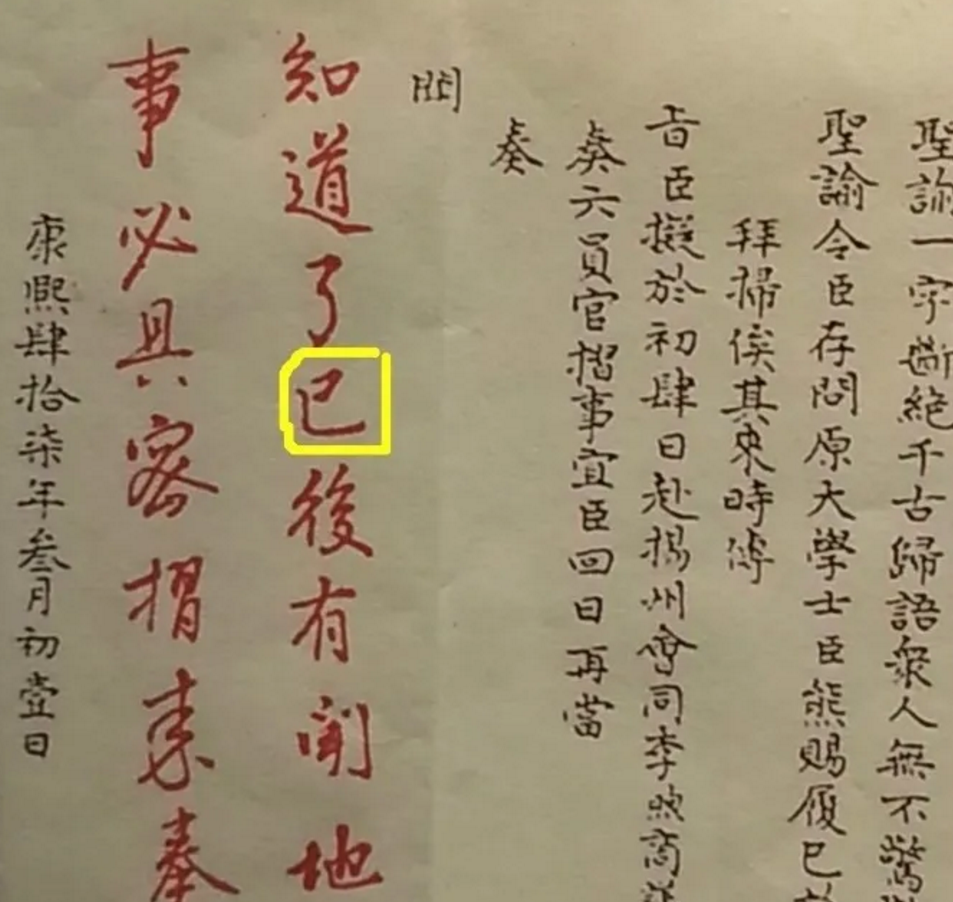 聖諭一字斷絕千古歸語衆人無不驚
聖諭令臣存問原大學士臣熊賜履已
拜掃俟其来時傳
旨臣擬於初肆日赴揚州會同李煦商
奏六員官摺事宜臣回日再當
奏
聞
知道了已後有聞地
事必具密摺来奏
康熙肆拾柒年叁月初壹日